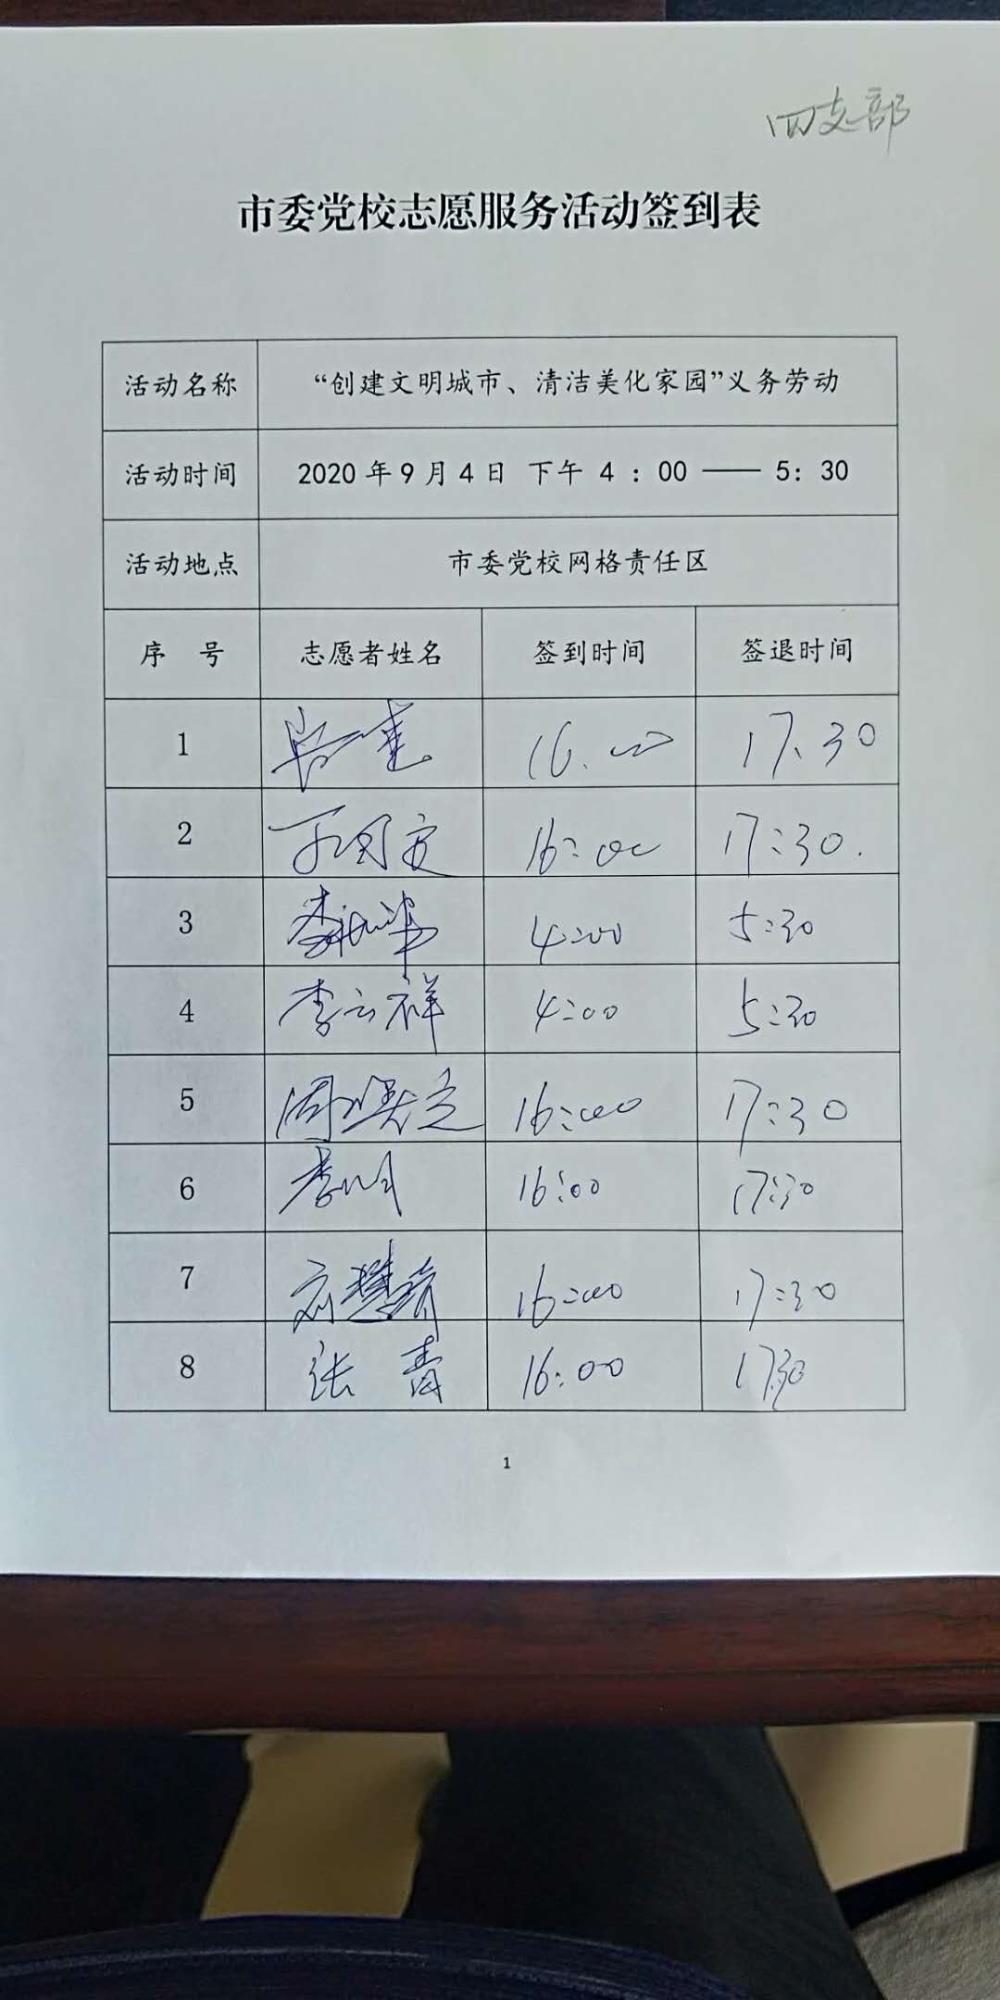 四支部
市委党校志愿服务活动签到表
活动名称 “创建文明城市、清洁美化家园”义务劳动
活动时间 2020年9月4日 下午 4：00 —— 5：30
活动地点 市委党校网格责任区
序 号 志愿者姓名 签到时间 签退时间
1 16.00 17.30
2 16:00 17:30.
3 4:00 5:30
4 李云祥 4:00 5:30
5 16:00 17:30
6 16:00 17:30
7 16:00 17:30
8 张青 16:00 17:30
1